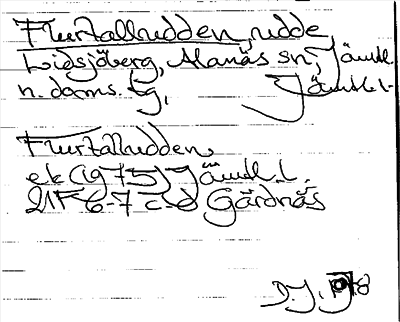 Flurtallrudden, udde
Lidsjöberg, Alanäs sn, Jämtl.
n. doms. tg, Jämtl. l.
Flurtallrudden.
ek (1975) Jämtl. l.
21F 6-7 c-d Gärdnäs
D.J. 1978